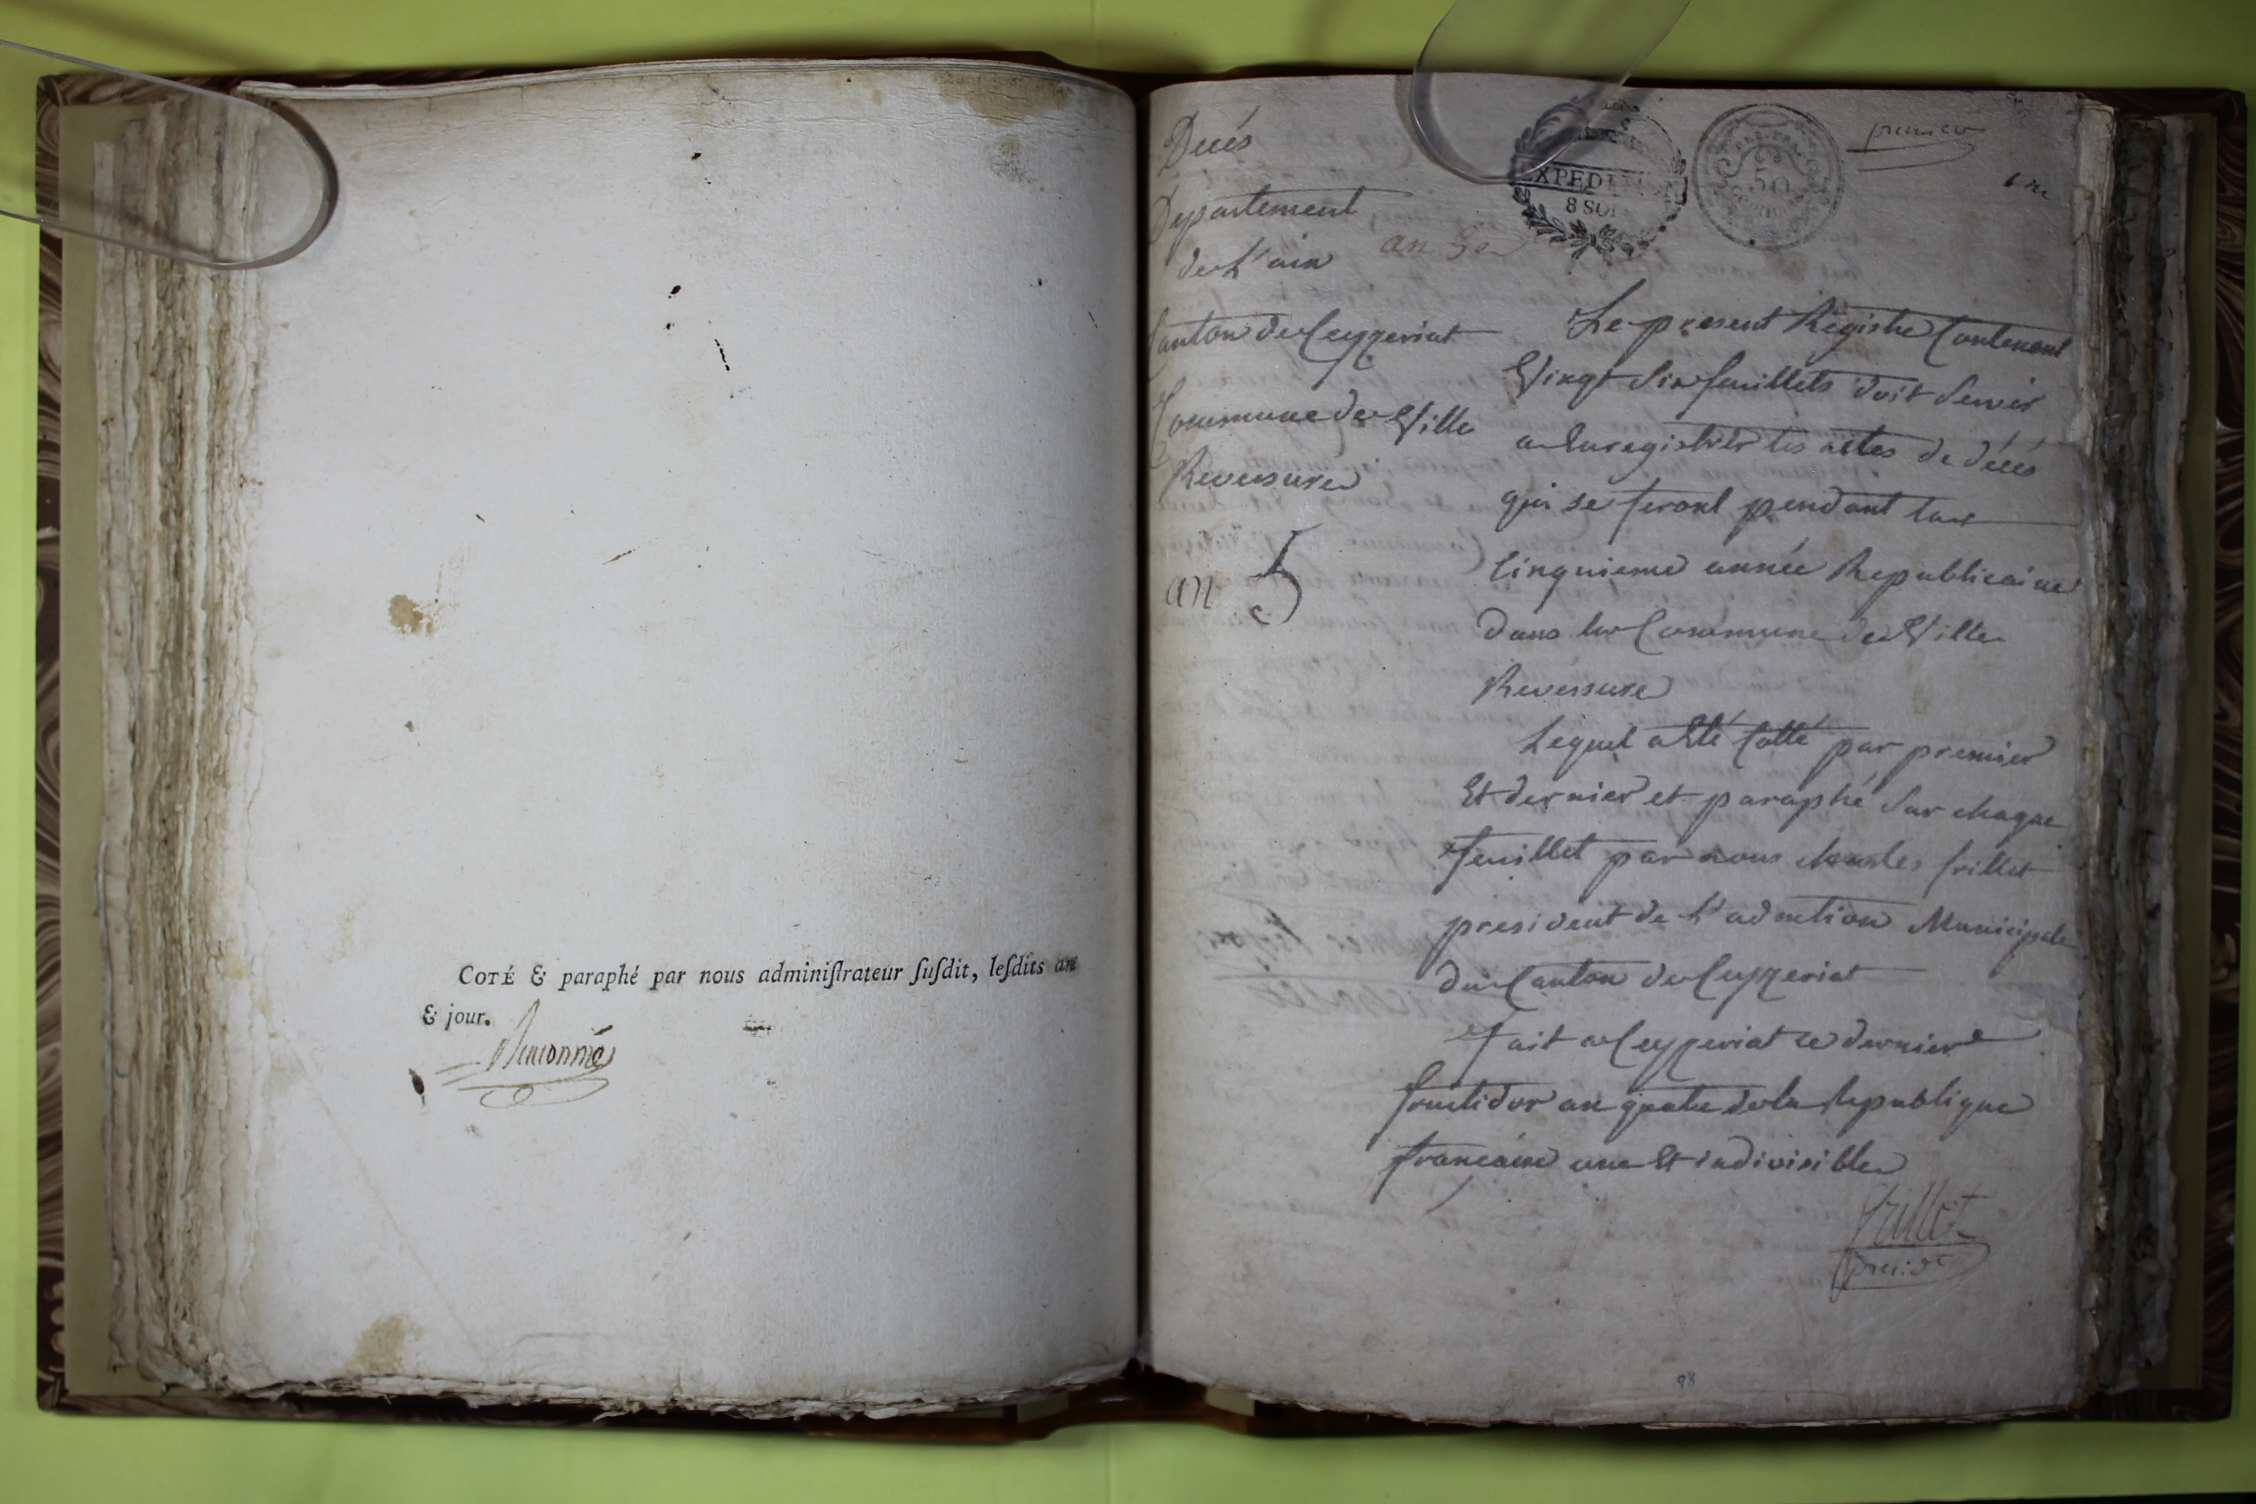 COTÉ & paraphé par nous adminiſtrateur ſuſdit, leſdits an
& jour.
Decés
Departement
de L'ain
an 5e
Canton de Ceyzeriat
Commune de Ville
Reversure
an 5
EXPEDITION
8 SOLS
50
premier
Le present Registre Contenant
Vingt Six feuillets doit Servir
a Enregistrer les actes de décés
qui se feront pendant la
Cinquieme année Republicaine
dans la Commune de Ville
Reversure
Lequel a Eté Cotté par premier
Et dernier et paraphé Sur chaque
feuillet par nous charles frillet
president de L'admtion Municipale
du Canton de Ceyzeriat
fait a Ceyzeriat ce dernier
fructidor an quatre de la Republique
francaise une Et indivisible
frillet
presidt
98